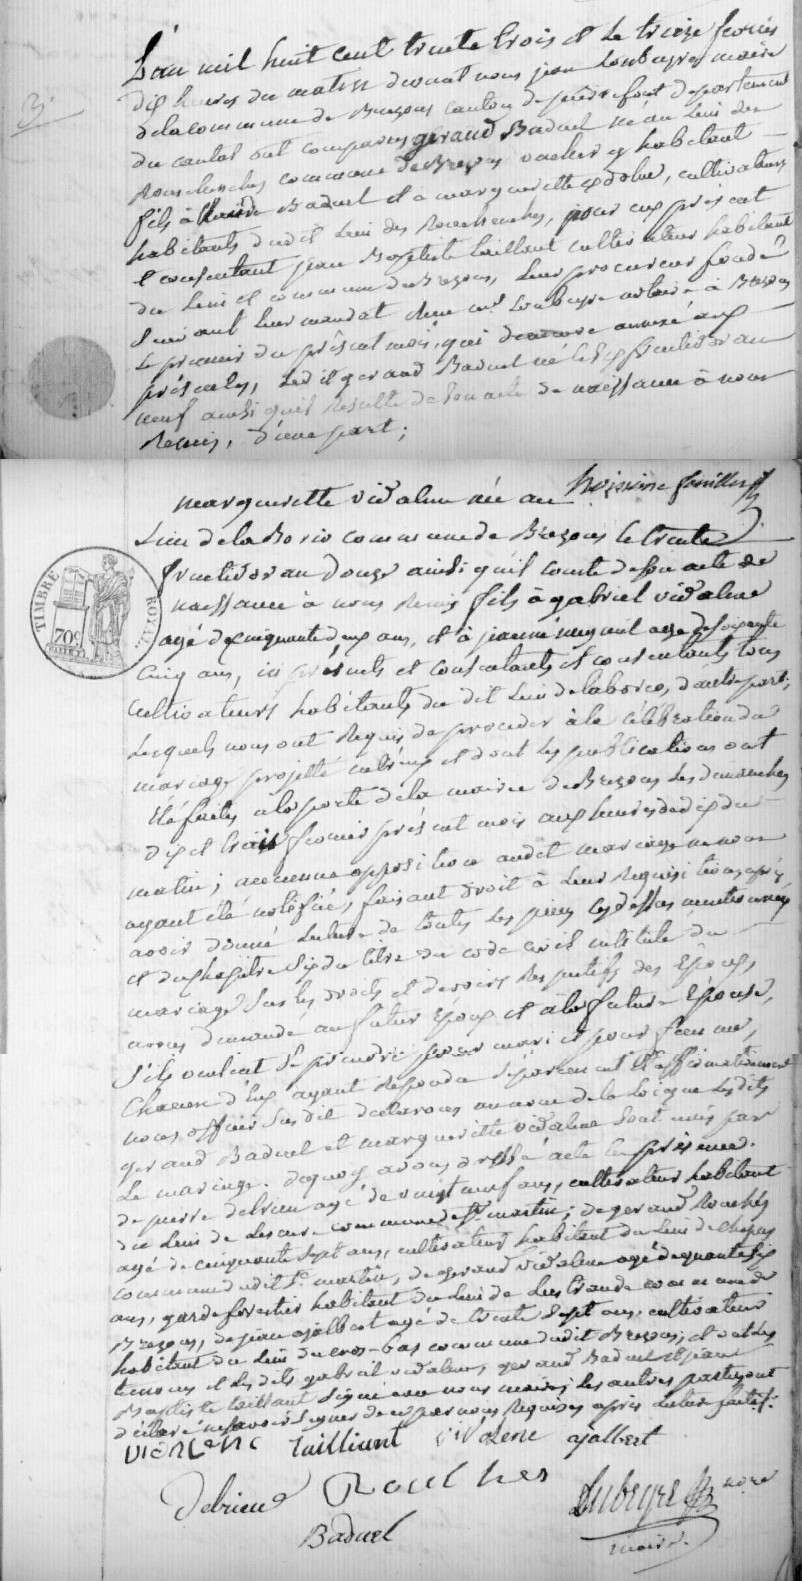 L'an mil huit cent trente trois et le treize fevrier
dix heures du matin devant nous jean Loubeyre maire
de la commune de Brezons canton de pierrefort departement
du cantal ont comparus geraud Baduel né au lieu des
commune de Brezons vacher y habitant
fils à Baduel et à margueritte cultivateurs
habitants dudit lieu des pour eux présent
et consentant jean Baptiste taillant cultivateur habitant
du lieu et commune de Brezons, leur procureur fondé
suivant leur mandat Loubeyre notaire à Brezons
le premier du présent mois, qui demeure annexé aux
présentes, ledit geraud Baduel né le fructidor an
neuf ainsi qu'il résulte de son acte de naissance à nous
Remis, d'une part;
3.
margueritte vidalenc née au
Lieu de la Borio commune de Brezons le trente
fructidor an douze ainsi qu'il conste de son acte de
naissance à nous Remis fils à gabriel vidalenc
agé de cinquante deux ans, et à jeanne agée de soixante
cinq ans, ici présents et consentants et consentants tous
cultivateurs habitants du dit lieu de laborio, d'autre part;
Lesquels nous ont Requis de proceder à la célébration du
mariage projetté entr'eux et dont les publications ont
été faites a la porte de la mairie de Brezons les dimanches
dix et trois fevrier présent mois aux heures de dix du
matin; aucune opposition audit mariage ne nous
ayant été notifiée, faisant droit à leur Requisition, après
avoir donné lecture de toutes les pièces cy dessus mentionnées
et du chapitre six du titre du code civil intitulé du
mariage sur les droits et devoirs Respectifs des Epoux,
avons demandé au futur Epoux et à la future Epouse,
s'ils veulent se prendre pour mari et pour femme,
Chacun d'Eux ayant Repondu séparement et affirmativement
nous officier susdit déclarons au nom de la loi que lesdits
geraud Baduel et margueritte vidalenc sont unis par
Le mariage. dequoy avons dressé acte En présence.
de pierre delrieu agé de vingt neuf ans, cultivateur habitant
du lieu de Lescure commune de St martin; de geraud Rouchés
agé de cinquante sept ans, cultivateur habitant du lieu de
commune dudit St. martin, de geraud vidalenc agé de quarante six
ans, garde forestier habitant du lieu de Lustrande commune de
Brezons, de jean ajalbert agé de trente sept ans, cultivateur
habitant du lieu du cros-bas commune dudit Brezons; et ont les
temoins et les dits gabriel vidalenc, geraud Baduel et jean
Baptiste taillant signé avec nous maire; les autres parties ont
déclaré ne savoir signer de ce par nous Requises après lecture faite.
TIMBRE ROYAL
70c
vidalenc Tailliant vidalenc ajalbert
Delrieu Rouchés Lubeyre
Baduel maire